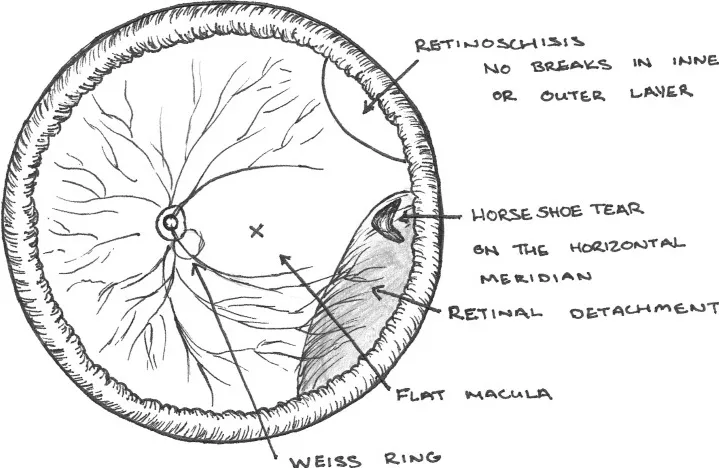 RETINOSCHISIS
NO BREAKS IN INNE
OR OUTER LAYER
HORSESHOE TEAR
ON THE HORIZONTAL
MERIDIAN
RETINAL DETACHMENT
FLAT MACULA
WEISS RING